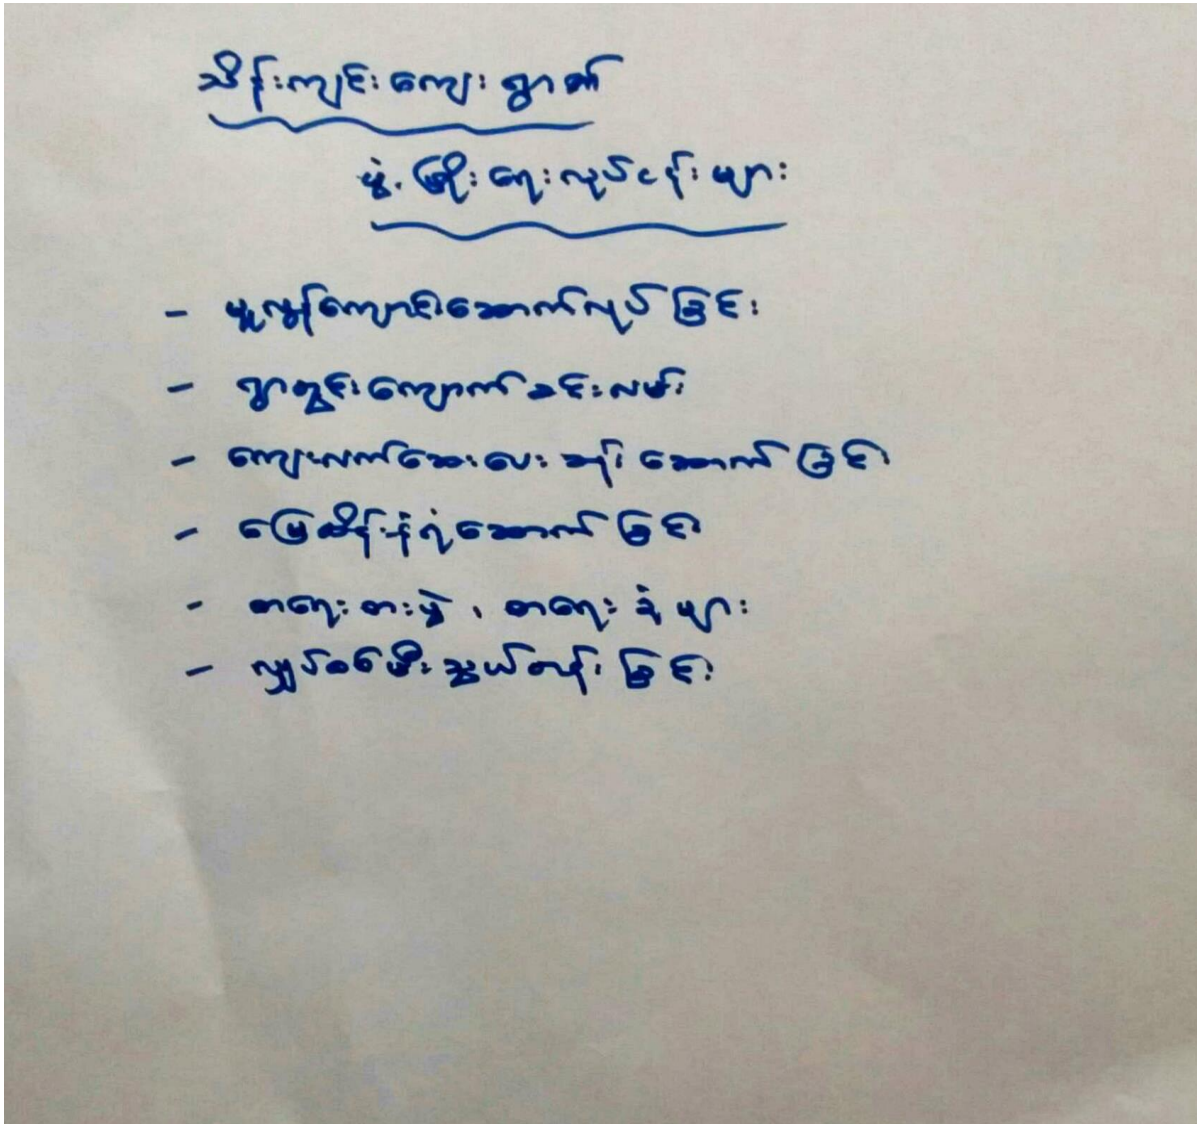 သိန်းကျင်းကျေးရွာ၏
ဖွံ့ဖြိုးရေးလုပ်ငန်းများ
- မူလွန်ကျောင်းဆောက်လုပ်ခြင်း
- ရွာတွင်းကျောက်ခင်းလမ်း
- ကျေးလက်ဆေးပေးခန်းဆောက်ခြင်း
- မြေထိန်းနံရံဆောက်ခြင်း
- စာရေးစားပွဲ၊ စာရေးခုံများ
- လျှပ်စစ်မီးသွယ်တန်းခြင်း